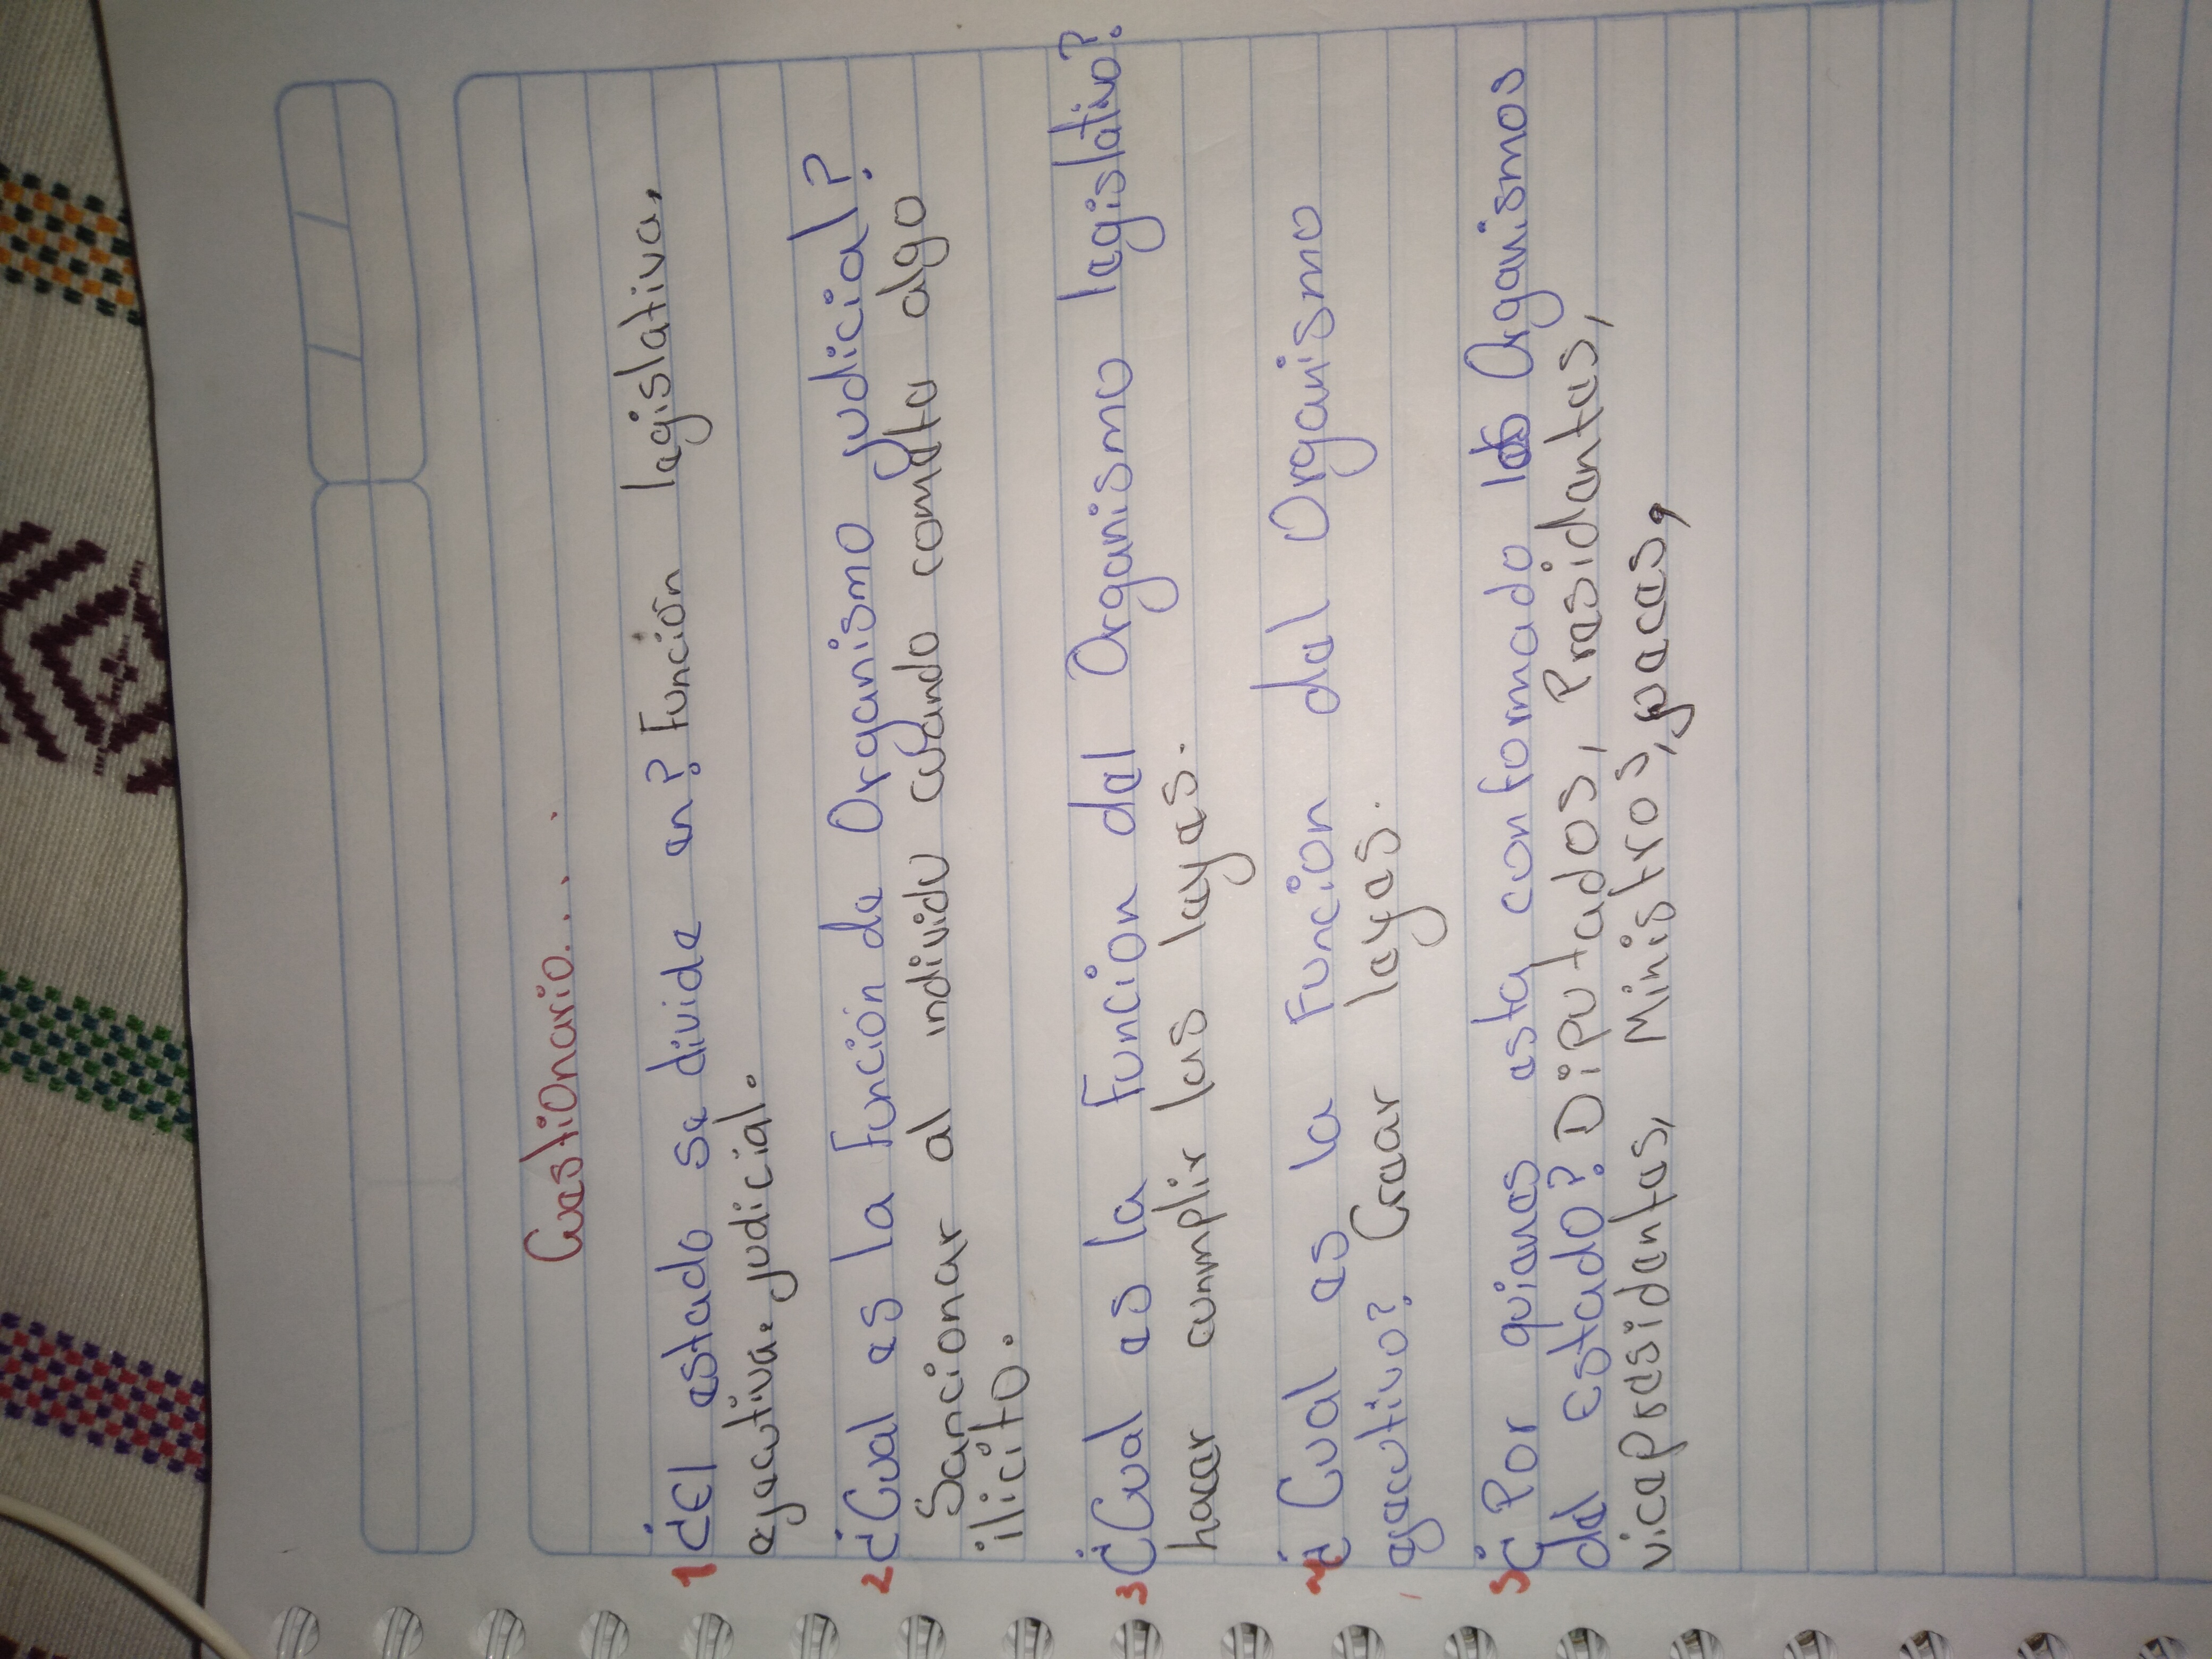 Cuestionario....
1 ¿El estado se divide en? Función legislativa,
ejecutiva. judicial.
2 ¿Cual es la Función de Organismo judicial?
Sancionar al individu cuando cometa algo
ilicito.
3 ¿Cual es la Funcion del Organismo legislativo?
hacer cumplir las leyes.
4 ¿Cual es la Funcion del Organismo
ejecutivo? Crear leyes.
5 ¿Por quienes esta conformado los Organismos
del Estado? Diputados, Presidentes,
vicepresidentes, Ministros,